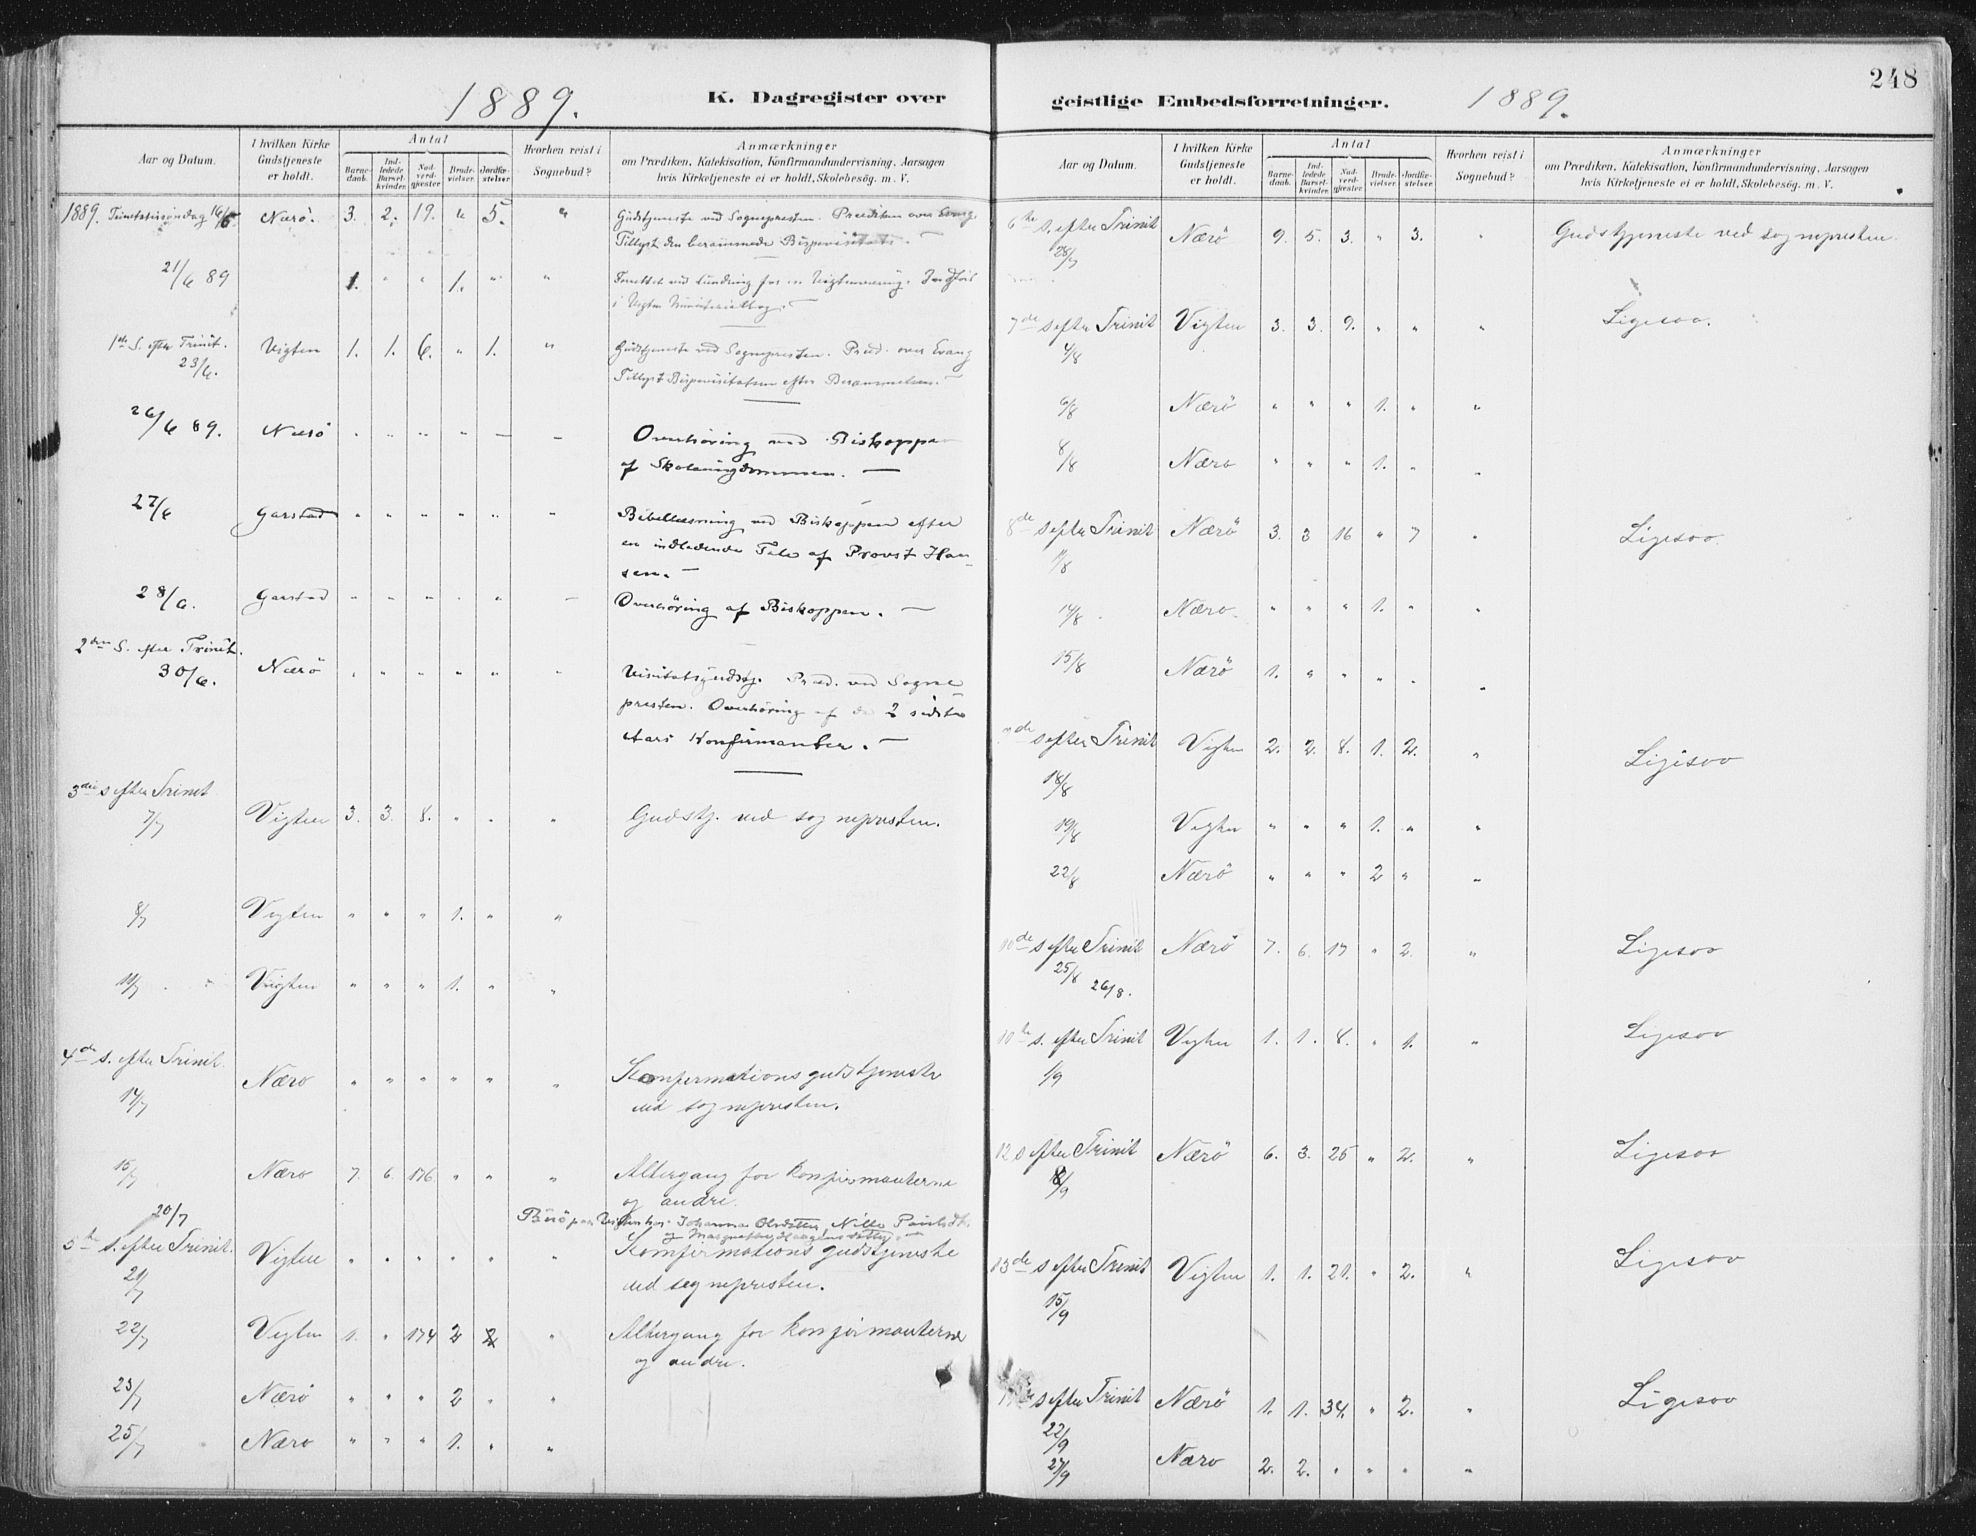 1889.
K. Dagregister over
Aar og Datum.
I hvilken Kirke Gudstjeneste er holdt.
Antal
Barne-daab.
Ind-ledede Barsel-kvinder.
Nad-verd-gjester
Brude-vielser.
Jordfæ-stelser
Hvorhen reist i Sognebud?
Anmærkninger
om Prædiken, Katekisation, Konfirmandundervisning, Aarsagen
hvis Kirketjeneste ei er holdt, Skolebesøg. m. V.
1889. Trinitatissøndag 16/6 Nærö. 3. 2. 19. " 5. " Gudstjeneste ved Sognepresten. Prædiken over Evang.
Tillyst den berammede Bispevisitats. —
21/6 89 1. " " 1. " "
i Vigten Ministerialbog. —
1ste S. efter Trinit. Vigten 1. 1. 6. " 1. " Gudstjeneste ved Sognepresten. Præd. over Evang
23/6. Tillyst Bispevisitatsen efter Berammelsen. —
26/6 89. Nærö " " " " — — Overhöring ved Biskoppen
af Skoleungdommen. —
27/6 Garstad " " " " " " Bibellæsning ved Biskoppen efter
en indledende Tale af Provst Han-
sen. —
28/6. Garstad " " " " " — Overhöring af Biskoppen. —
2den S. efter Trinit.
30/6. Nærö " " " " " " Visitatsgudstj. Præd. ved Sogne
presten. Overhöring af de 2 sidste
Aars Konfirmanter. —
3die s efter Trinit
7/7 Vigten 3. 3. 8. " " " Gudstj. ved sognepresten.
8/7 Vigten " " " 1. " "
11/7 Vigten " " " 1. " "
4de s. efter Trinit.
14/7 Nærö " " " " " " Konfirmationsgudstjeneste
ved sognepresten.
15/7 Nærö 7. 6. 176. " " " Altergang for konfirmanterne
og andre.
20/7 Johanna Olsdatter,
5te s. efter Trinit. Vigten " " " " " " Konfirmationsgudstjeneste
21/7 ved sognepresten.
22/7 Vigten 1. " 174 2 2 " Altergang for konfirmanterne
og andre.
23/7 Nærö " " " 2 " "
25/7 Nærö " " " 1. " "
248
geistlige Embedsforretninger.
1889.
Aar og Datum.
I hvilken Kirke Gudstjeneste er holdt.
Antal
Barne-daab.
Ind-ledede Barsel-kvinder.
Nad-verd-gjester
Brude-vielser.
Jordfæ-stelser
Hvorhen reist i Sognebud?
Anmærkninger
om Prædiken, Katekisation, Konfirmandundervisning, Aarsagen
hvis Kirketjeneste ei er holdt, Skolebesøg. m. V.
6te s. efter Trinit Nærö 9. 5. 3. " 3. " Gudstjeneste ved sognepresten.
28/7
7de s efter Trinit Vigten 3. 3. 9. " " " Ligesaa.
4/8
6/8 Nærö " " " 1. " "
8/8 Nærö " " " 1. " "
8de s efter Trinit Nærö 3. 3 16 " 7 " Ligesaa.
11/8
14/8 Nærö " " " 1. " "
15/8 Nærö 1. " " " " "
9de s efter Trinit Vigten 2. 2. 8. 1. 2. " Ligesaa
18/8
19/8 Vigten " " " 1. " "
22/8 Nærö " " " 2 " "
10de s efter Trinit Nærö 7. 6. 17 " 2. " Ligesaa
25/8 26/8.
10de s. efter Trinit Vigten 1. 1. 8. " 1. " Ligesaa
1/9
12 s efter Trinit Nærö 6. 3. 25 " 2. " Ligesaa
8/9
13de s efter Trinit Vigten 1. 1. 21. " 2. " Ligesaa
15/9
s efter Trinit Nærö 1. 1. 34. " 2. " Ligesaa
22/9
27/9 Nærö 2. 2. " " " "